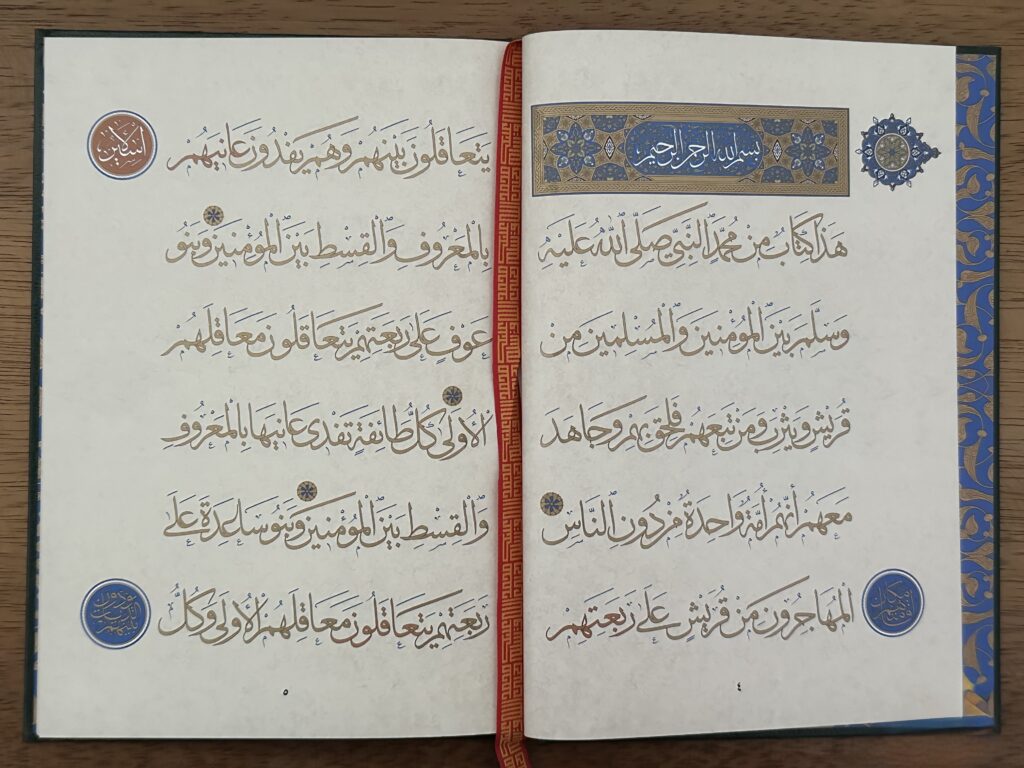 بسم الله الرحمن الرحيم
هَذَا كِتَابٌ مِنْ مُحَمَّدٍ النَّبِيِّ صَلَّى اللهُ عَلَيْهِ
وَسَلَّمَ بَيْنَ الْمُؤْمِنِينَ وَالْمُسْلِمِينَ مِنْ
قُرَيْشٍ وَيَثْرِبَ وَمَنْ تَبِعَهُمْ فَلَحِقَ بِهِمْ وَجَاهَدَ
مَعَهُمْ أَنَّهُمْ أُمَّةٌ وَاحِدَةٌ مِنْ دُونِ النَّاسِ
الْمُهَاجِرُونَ مِنْ قُرَيْشٍ عَلَى رَبْعَتِهِمْ
٤
يَتَعَاقَلُونَ بَيْنَهُمْ وَهُمْ يَفْدُونَ عَانِيَهُمْ
بِالْمَعْرُوفِ وَالْقِسْطِ بَيْنَ الْمُؤْمِنِينَ وَبَنُو
عَوْفٍ عَلَى رَبْعَتِهِمْ يَتَعَاقَلُونَ مَعَاقِلَهُمْ
الْأُولَى كُلُّ طَائِفَةٍ تَفْدِي عَانِيَهَا بِالْمَعْرُوفِ
وَالْقِسْطِ بَيْنَ الْمُؤْمِنِينَ وَبَنُو سَاعِدَةَ عَلَى
رَبْعَتِهِمْ يَتَعَاقَلُونَ مَعَاقِلَهُمْ الْأُولَى وَكُلُّ
٥